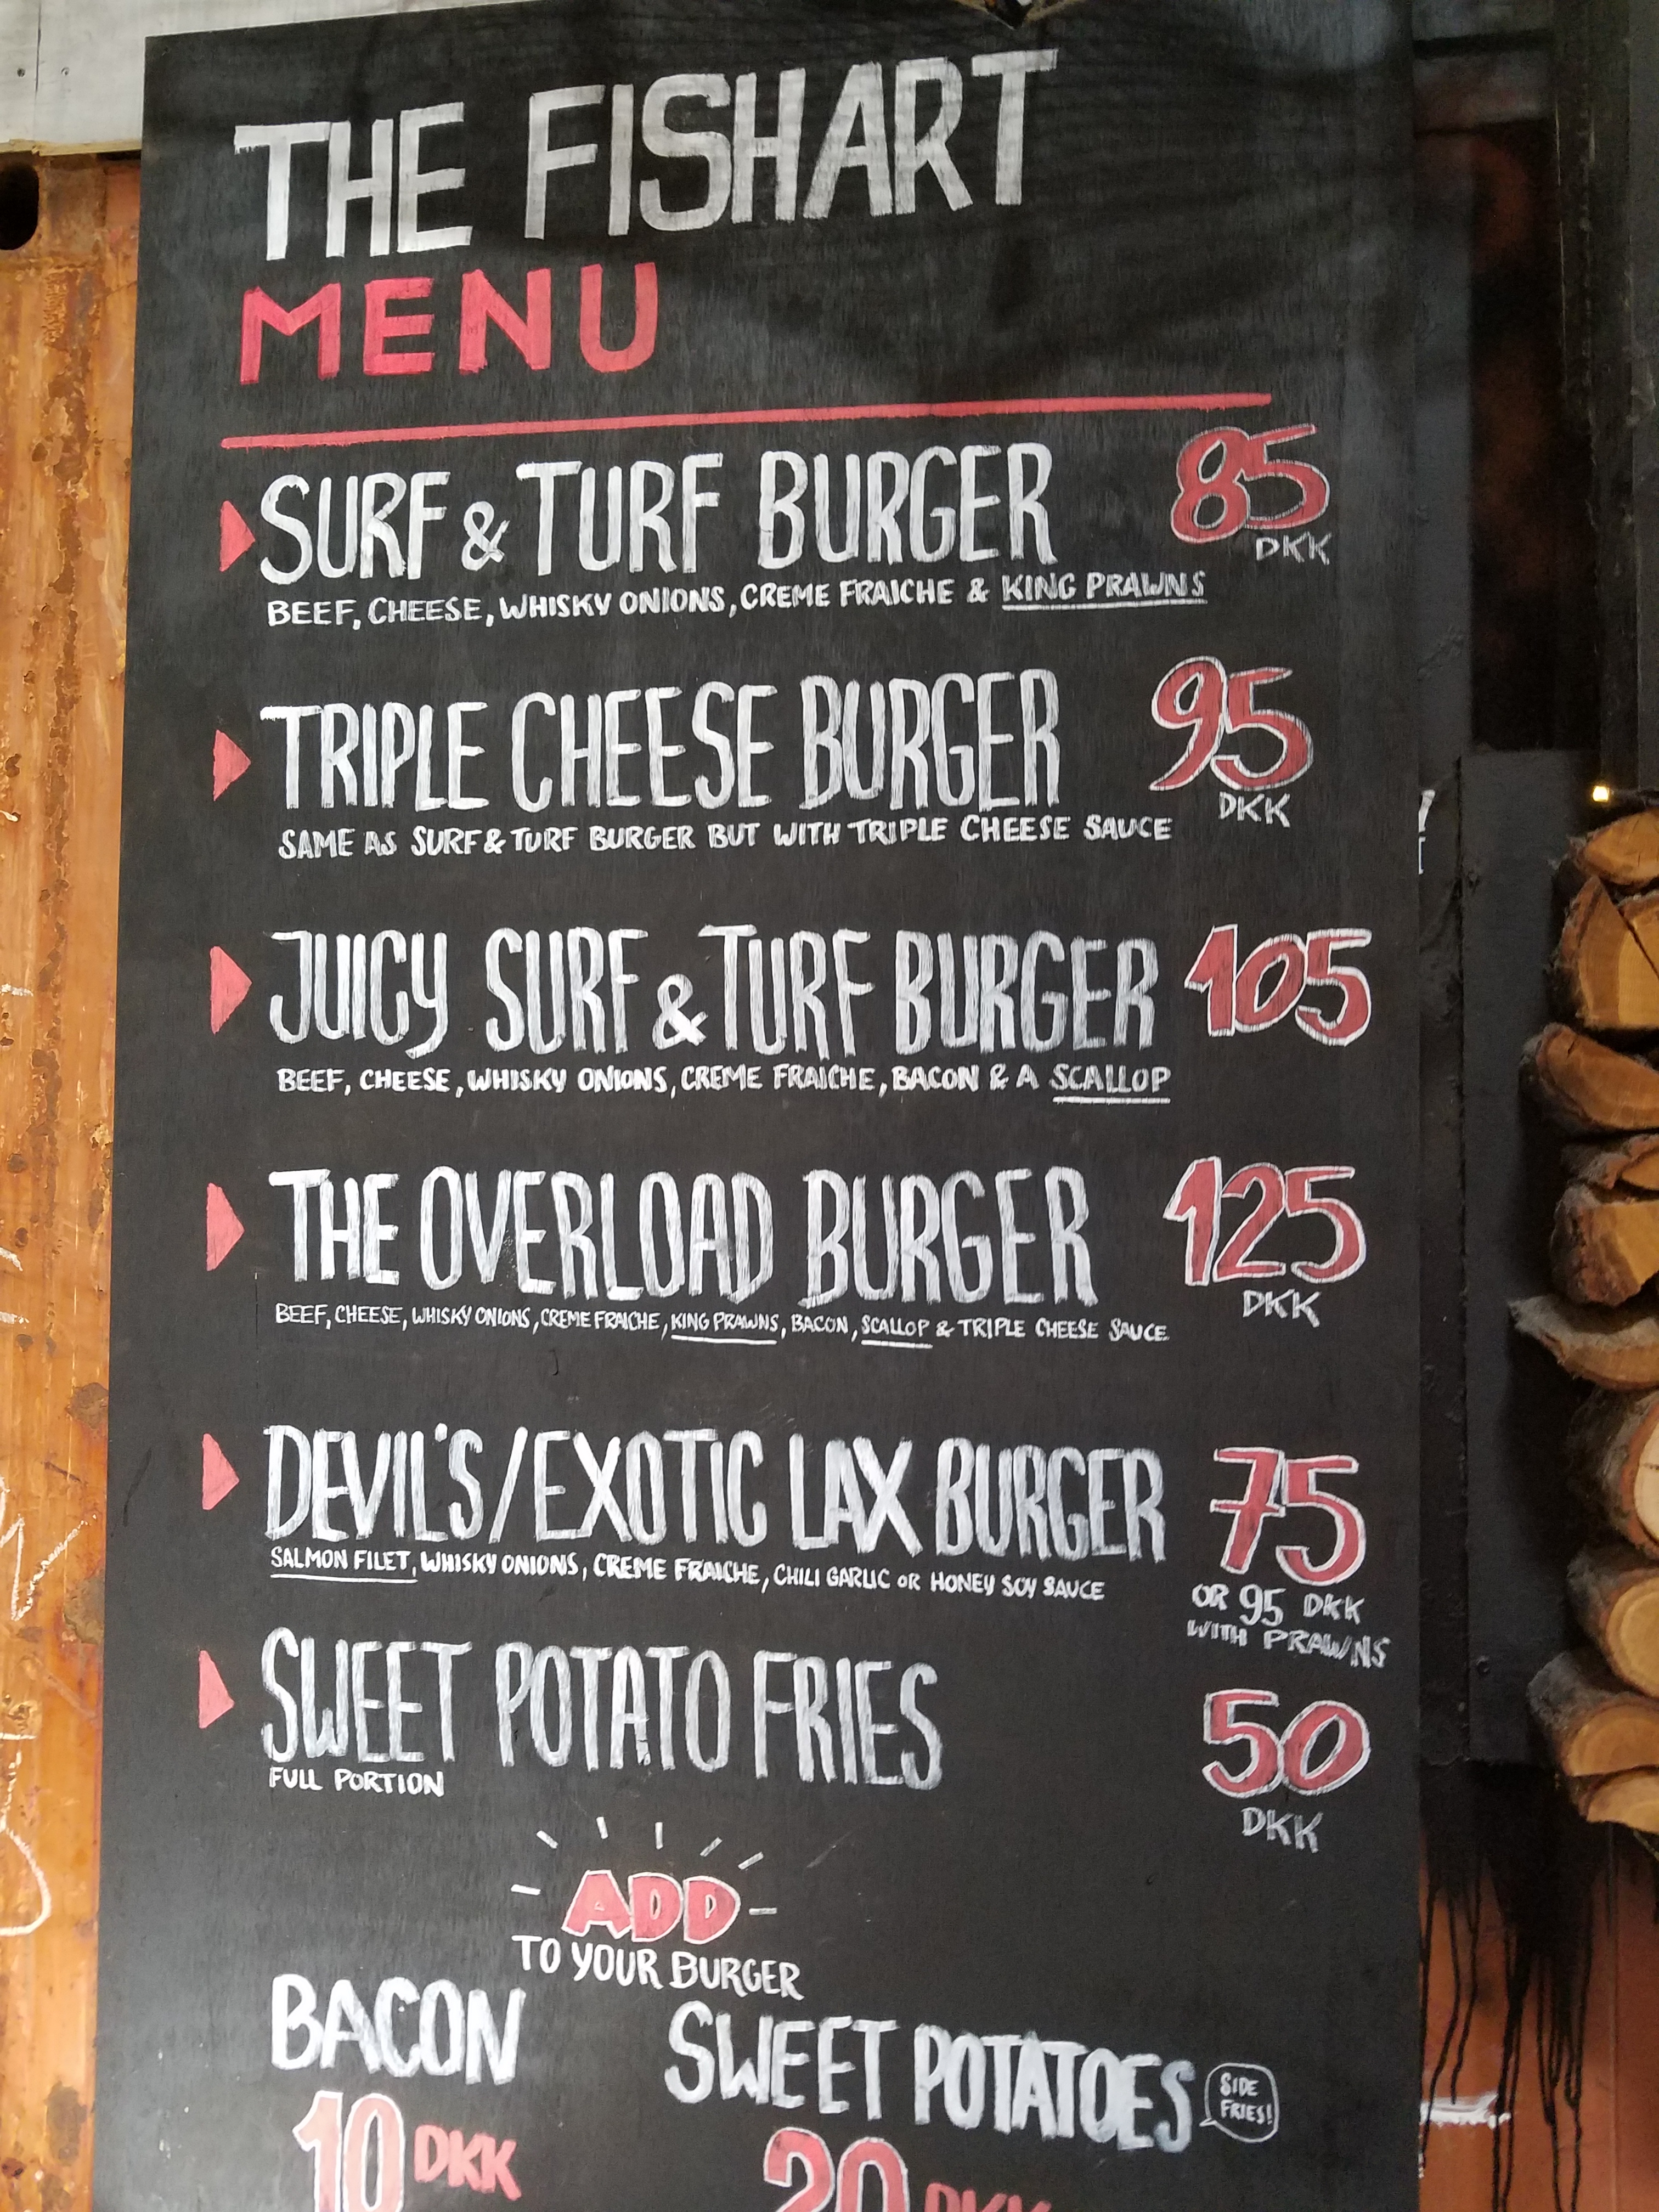 THE FISHART
MENU
SURF & TURF BURGER 85 DKK
BEEF, CHEESE, WHISKY ONIONS, CREME FRAICHE & KING PRAWNS
TRIPLE CHEESE BURGER 95 DKK
SAME AS SURF & TURF BURGER BUT WITH TRIPLE CHEESE SAUCE
JUICY SURF & TURF BURGER 105
BEEF, CHEESE, WHISKY ONIONS, CREME FRAICHE, BACON & A SCALLOP
THE OVERLOAD BURGER 125 DKK
BEEF, CHEESE, WHISKY ONIONS, CREME FRAICHE, KING PRAWNS, BACON, SCALLOP & TRIPLE CHEESE SAUCE
DEVIL'S/EXOTIC LAX BURGER 75
SALMON FILET, WHISKY ONIONS, CREME FRAICHE, CHILI GARLIC OR HONEY SOY SAUCE
OR 95 DKK
WITH PRAWNS
SWEET POTATO FRIES 50 DKK
FULL PORTION
ADD
TO YOUR BURGER
BACON
10 DKK
SWEET POTATOES
SIDE
FRIES!
20 DKK